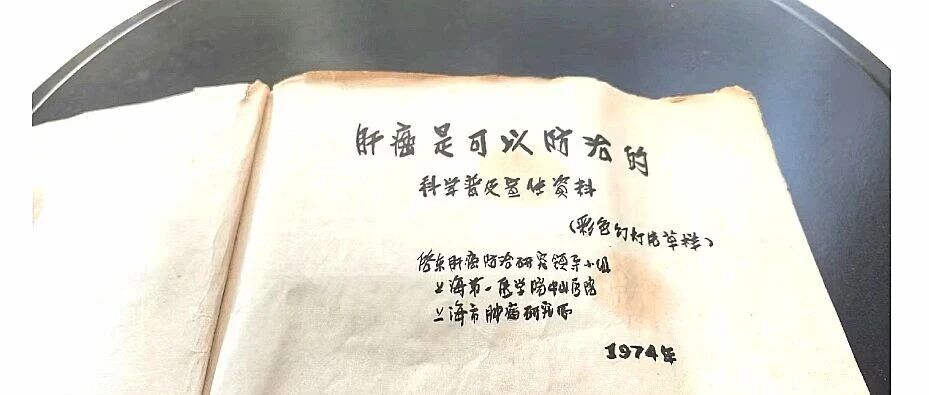 肝癌是可以防治的
科学普及宣传资料
(彩色幻灯片草样)
启东肝癌防治研究领导小组
上海第一医学院中山医院
上海市肿瘤研究所
1974年